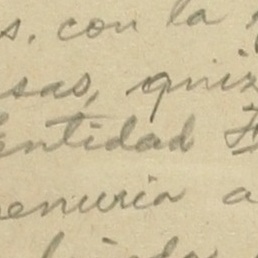 s. con la
sas, quiz
entidad F
penuria a